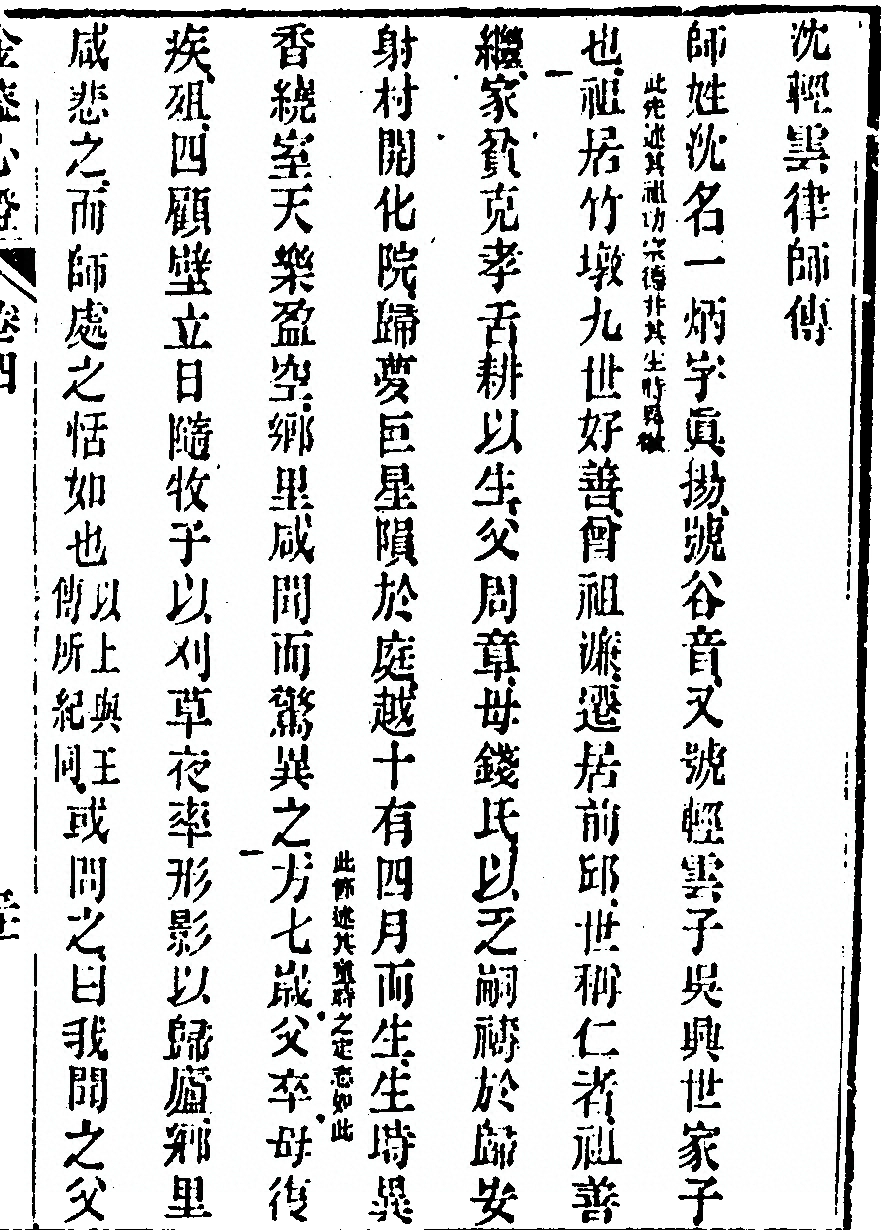 沈輕雲律師傳
師姓沈名一炳字眞揚、號谷音、又號輕雲子吳興世家子
此先述其祖功宗德非其生時
也、祖居竹墩九世好善、曾祖濂、遷居前邱、世稱仁者、祖善
繼、家貧克孝舌耕以生、父周章、母錢氏、以乏嗣禱於歸安
射村開化院、歸夢巨星隕於庭、越十有四月而生、生時異
此節述其童時之定志如此
香繞室天樂盈空、鄉里咸聞而驚異之、方七歲父卒母復
疾、殂、四顧壁立日隨牧子以刈草夜率形影以歸廬、鄉里
咸悲之、而師處之恬如也以上與王傳所紀同、或問之、曰我聞之父
金蓋心燈 卷四